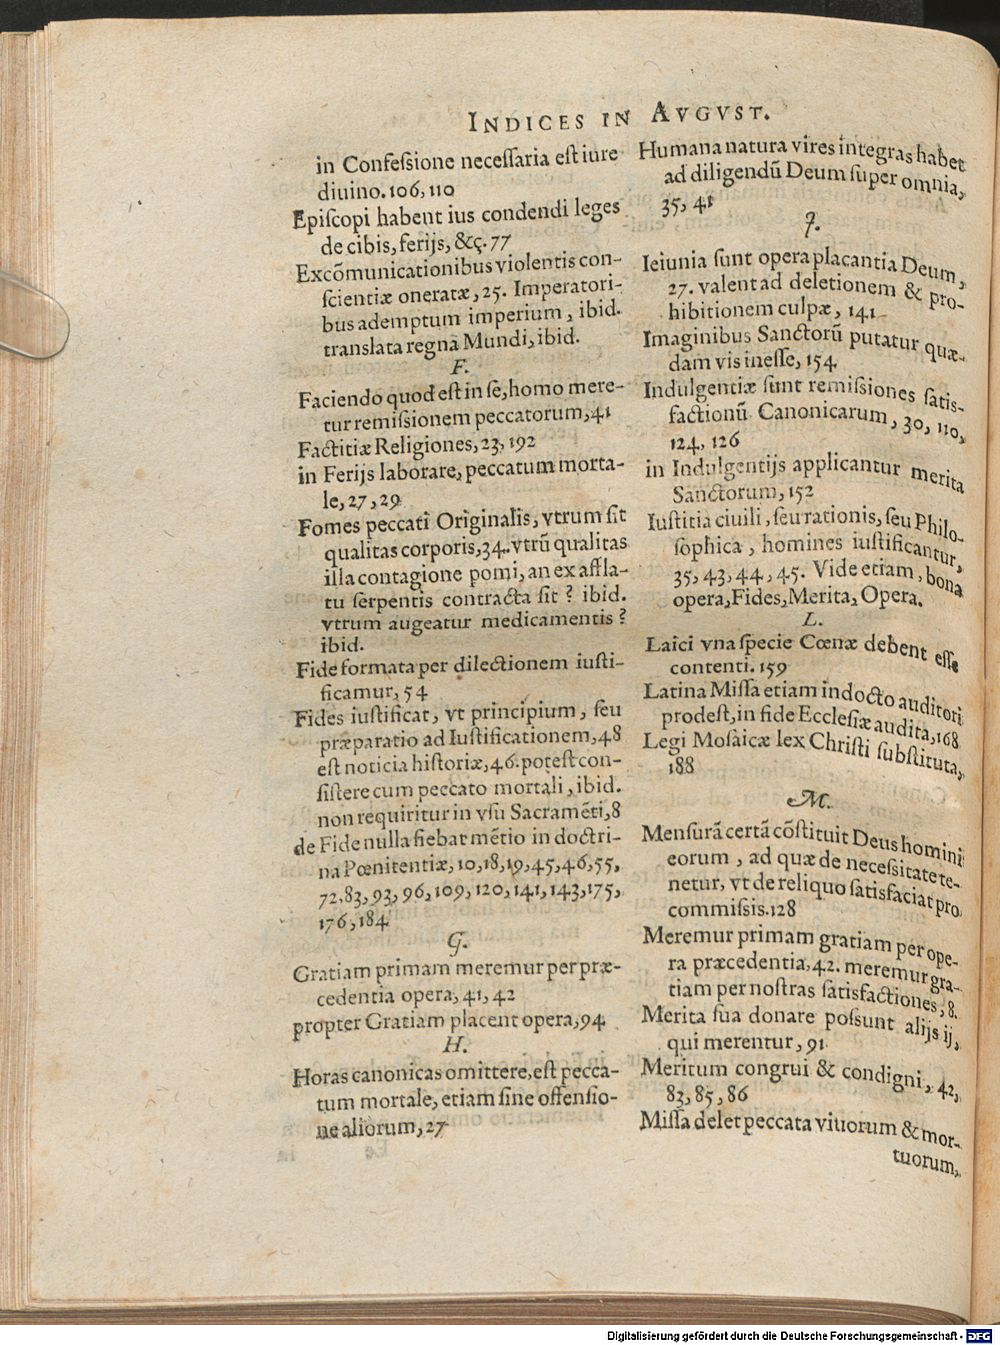 INDICES IN AVGVST.
in Confeſsione neceſſaria eſt iure
diuino. 106, 110
Epiſcopi habent ius condendi leges
de cibis, ferijs, &ç. 77
Excõmunicationibus violentis con-
ſcientiæ oneratæ, 25. Imperatori-
bus ademptum imperium, ibid.
translata regna Mundi, ibid.
F.
Faciendo quod eſt in ſe, homo mere-
tur remiſsionem peccatorum, 41
Factitiæ Religiones, 23, 192
in Ferijs laborare, peccatum morta-
le, 27, 29
Fomes peccati Originalis, vtrum ſit
qualitas corporis, 34. vtrũ qualitas
illa contagione pomi, an ex affla-
tu ſerpentis contracta ſit ? ibid.
vtrum augeatur medicamentis ?
ibid.
Fide formata per dilectionem iuſti-
ficamur, 54
Fides iuſtificat, vt principium, ſeu
præparatio ad Iuſtificationem, 48
eſt noticia hiſtoriæ, 46. poteſt con-
ſiſtere cum peccato mortali, ibid.
non requiritur in vſu Sacramẽti, 8
de Fide nulla fiebat mẽtio in doctri-
na Pœnitentiæ, 10, 18, 19, 45, 46, 55,
72, 83, 93, 96, 109, 120, 141, 143, 175,
176, 184
G.
Gratiam primam meremur per præ-
cedentia opera, 41, 42
propter Gratiam placent opera, 94
H.
Horas canonicas omittere, eſt pecca-
tum mortale, etiam ſine offenſio-
ne aliorum, 27
Humana natura vires integras habet
ad diligendũ Deum ſuper omnia,
35, 41
I.
Ieiunia ſunt opera placantia Deum,
27. valent ad deletionem & pro-
hibitionem culpæ, 141
Imaginibus Sanctorũ putatur quæ-
dam vis ineſſe, 154
Indulgentiæ ſunt remiſsiones ſatis-
factionũ Canonicarum, 30, 110,
124, 126
in Indulgentijs applicantur merita
Sanctorum, 152
Iuſtitia ciuili, ſeu rationis, ſeu Philo-
ſophica, homines iuſtificantur,
35, 43, 44, 45. Vide etiam, bona
opera, Fides, Merita, Opera.
L.
Laici vna ſpecie Cœnæ debent eſſe
contenti. 159
Latina Miſſa etiam indocto auditori
prodeſt, in fide Eccleſiæ audita, 168
Legi Moſaicæ lex Chriſti ſubſtituta,
188
M.
Menſurã certã cõſtituit Deus homini
eorum, ad quæ de neceſsitate te-
netur, vt de reliquo ſatisfaciat pro
commiſsis. 128
Meremur primam gratiam per ope-
ra præcedentia, 42. meremur gra-
tiam per noſtras ſatisfactiones, 8.
Merita ſua donare poſsunt alijs ij,
qui merentur, 91
Meritum congrui & condigni, 42,
83, 85, 86
Miſſa delet peccata viuorum & mor-
tuorum,
Digitalisierung gefördert durch die Deutsche Forschungsgemeinschaft - DFG